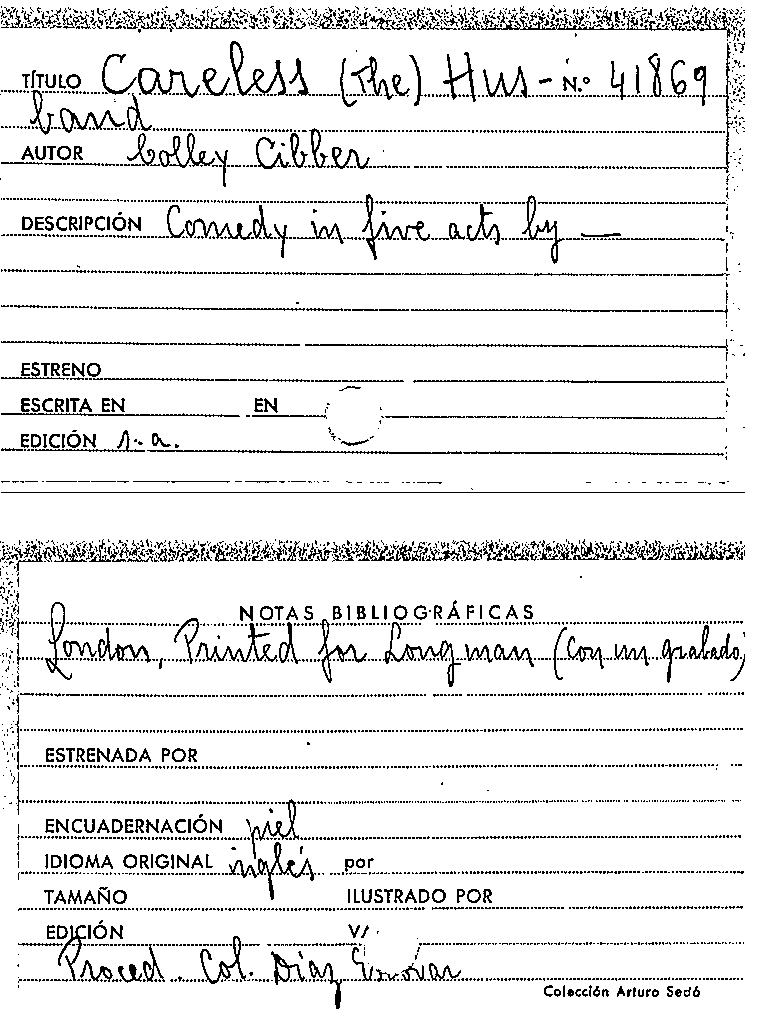 TÍTULO Careless (The) Hus- N.º 41869
band
AUTOR Colley Cibber
DESCRIPCIÓN Comedy in five acts by —
ESTRENO
ESCRITA EN EN
EDICIÓN s.a.
NOTAS BIBLIOGRÁFICAS
London, Printed for Longman (con un grabado)
ESTRENADA POR
ENCUADERNACIÓN piel
IDIOMA ORIGINAL inglés por
TAMAÑO ILUSTRADO POR
EDICIÓN V/
Proced. Col. Díaz
Colección Arturo Sedó